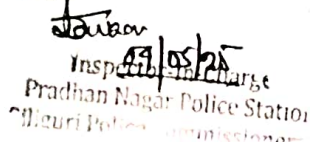 04/05/25
Inspector-in-Charge
Pradhan Nagar Police Station
Siliguri Police Commissioner